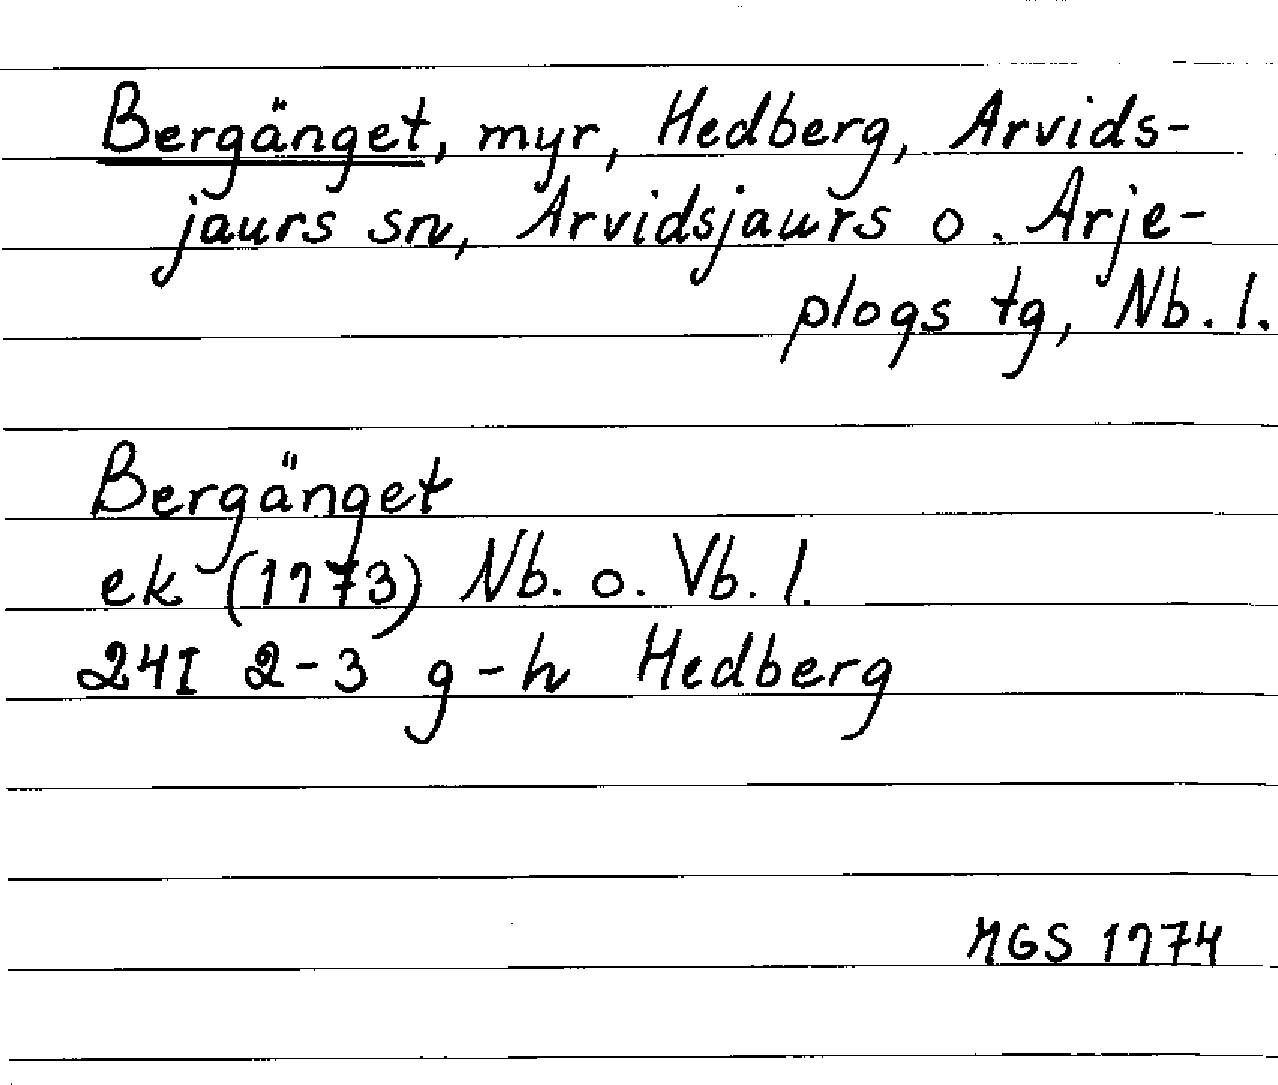 Bergänget, myr, Hedberg, Arvids-
jaurs sn, Arvidsjaurs o. Arje-
plogs tg, Nb. l.
Bergänget
ek (1973) Nb. o. Vb. l.
24I 2-3 g-h Hedberg
MGS 1974